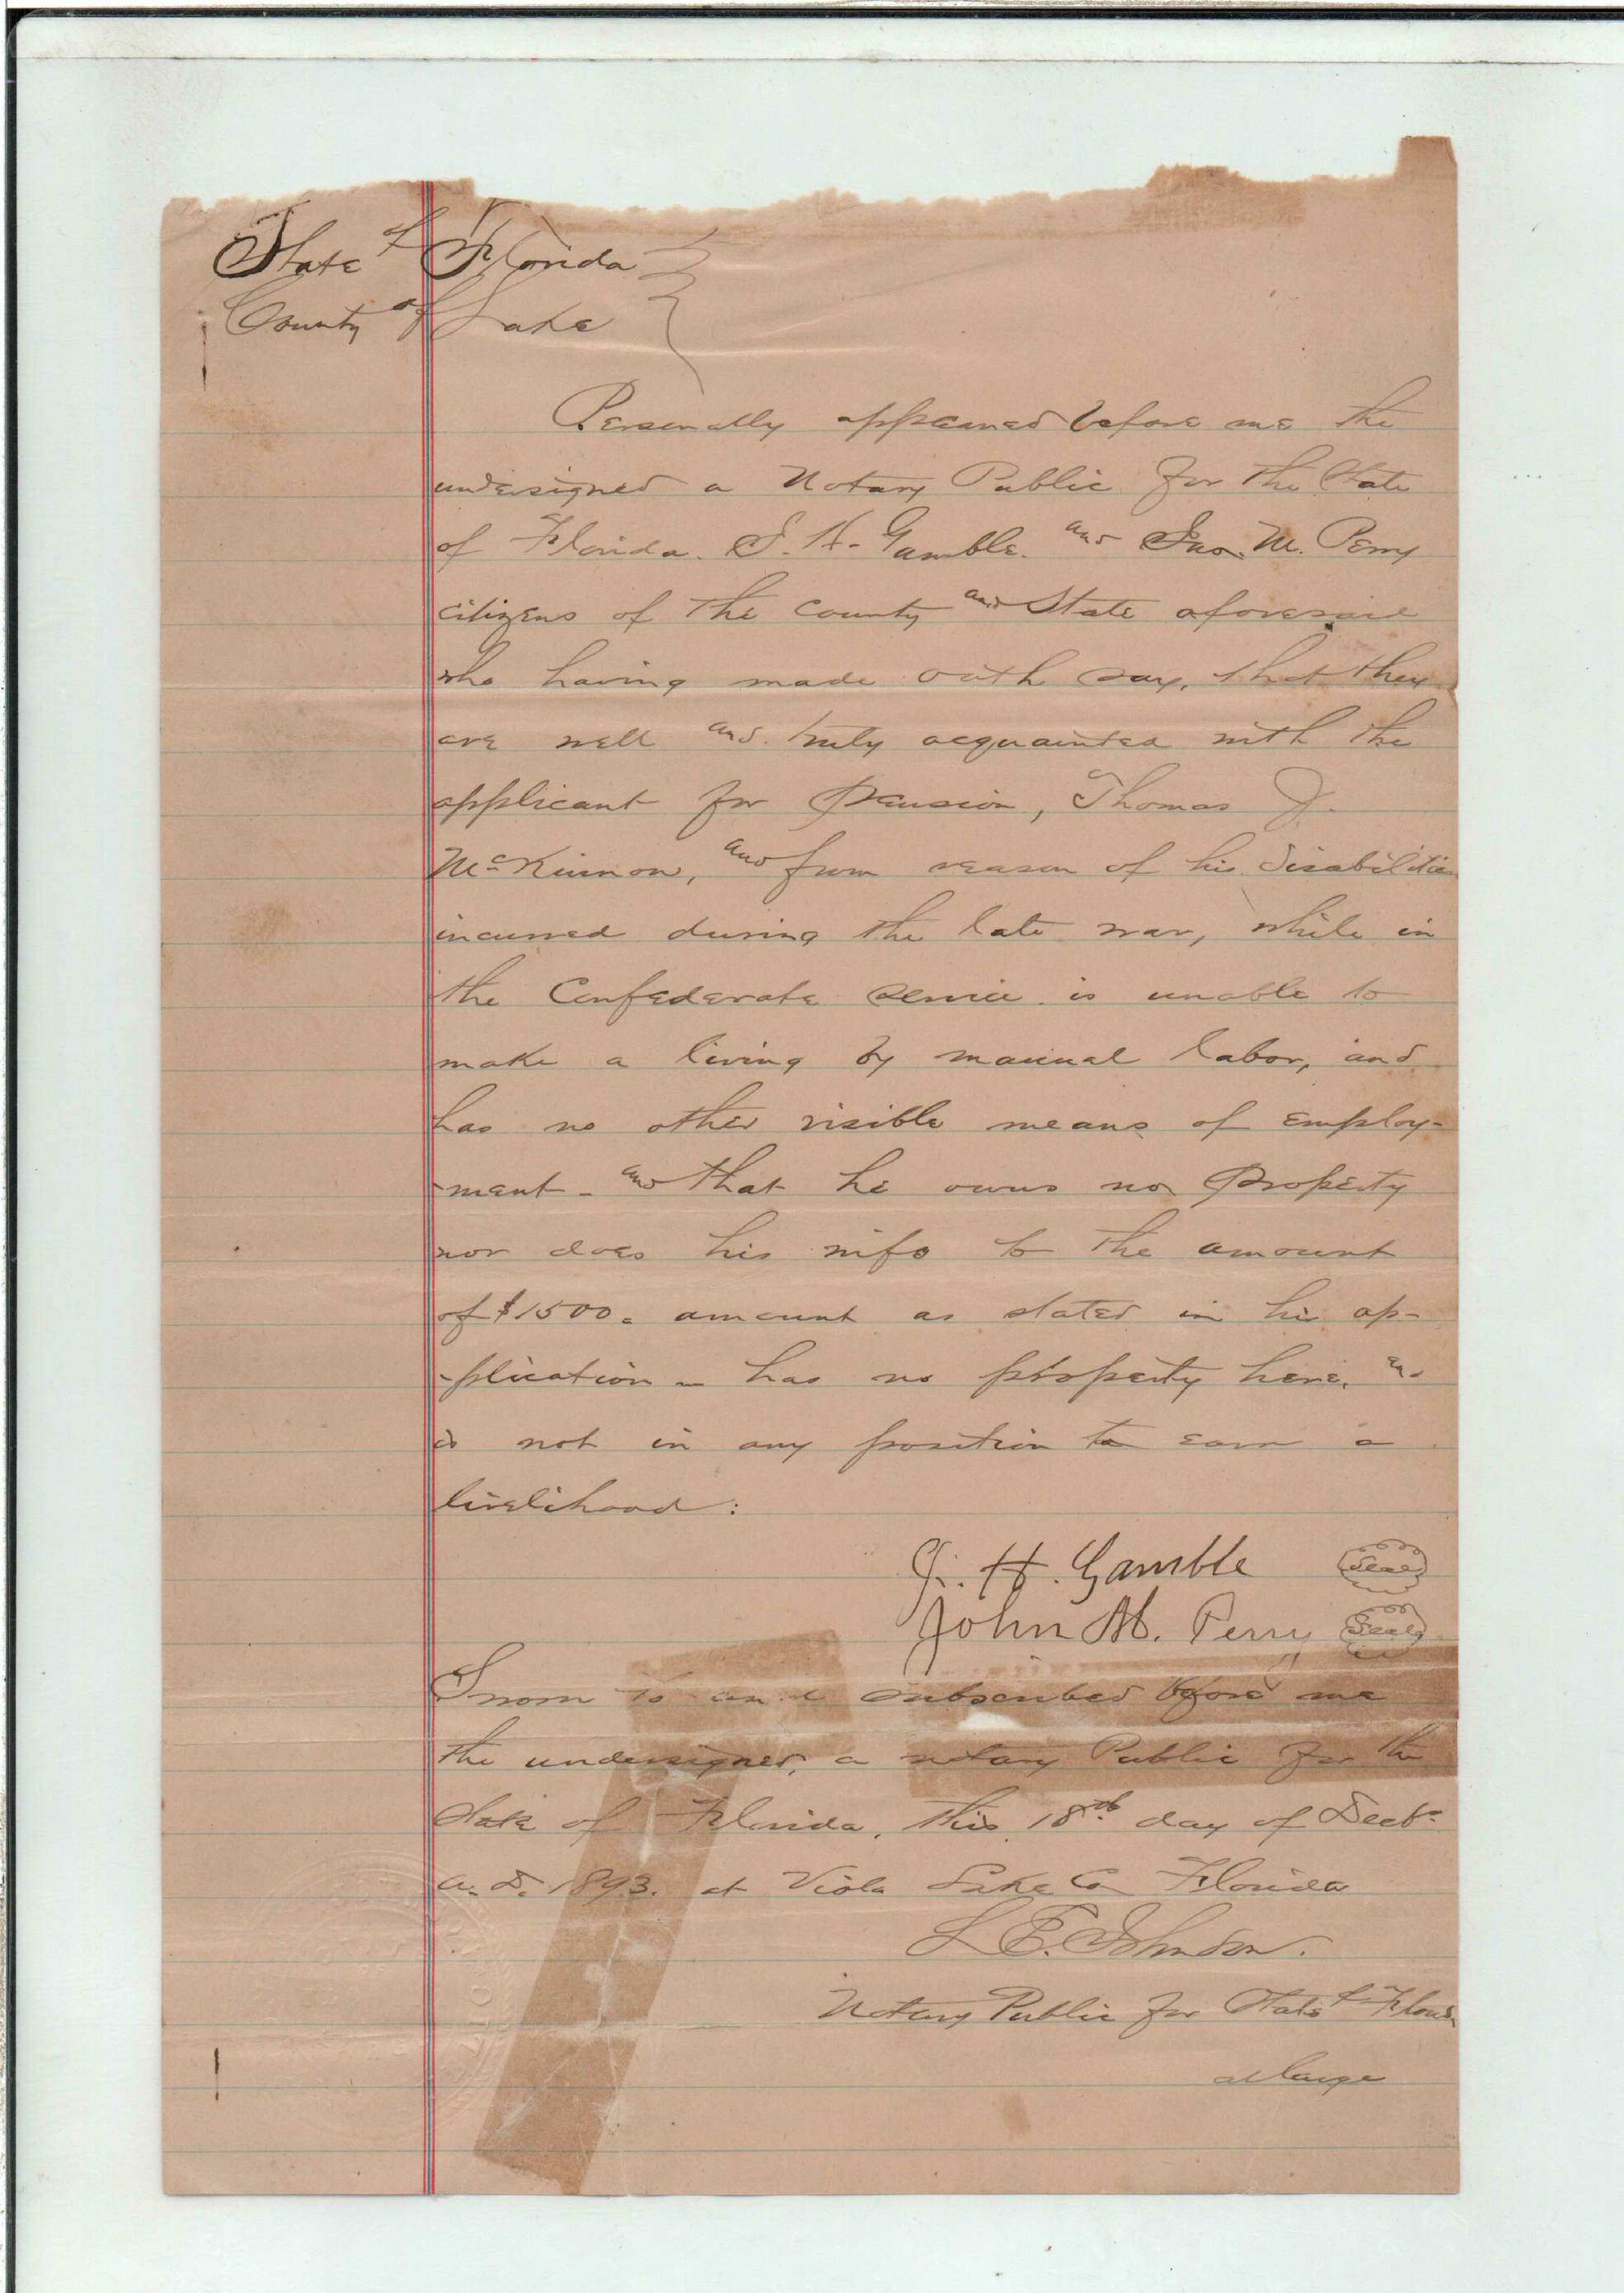 State of Florida
County of Lake
Personally appeared before me the
undersigned a Notary Public for the State
of Florida. J. H. Gamble. and Jno. M. Perry
citizens of the County and State aforesaid
who having made oath say, that they
are well and truly acquainted with the
applicant for Pension, Thomas J.
McKinnon, and from reason of his disabilities
incurred during the late war, while in
the Confederate service is unable to
make a living by manual labor, and
has no other visible means of employ-
-ment - and that he owns no Property
nor does his wife to the amount
of $1500. amount as stated in his ap-
-plication - has no property here, and
is not in any position to earn a
livelihood:
J. H. Gamble Seal
John M. Perry Seal
Sworn to and subscribed before me
the undersigned, a notary Public for the
State of Florida, this 18th day of Decbr
A.D. 1893. at Viola Lake Co Florida
L E. Johnson.
Notary Public for State of Florida
at large